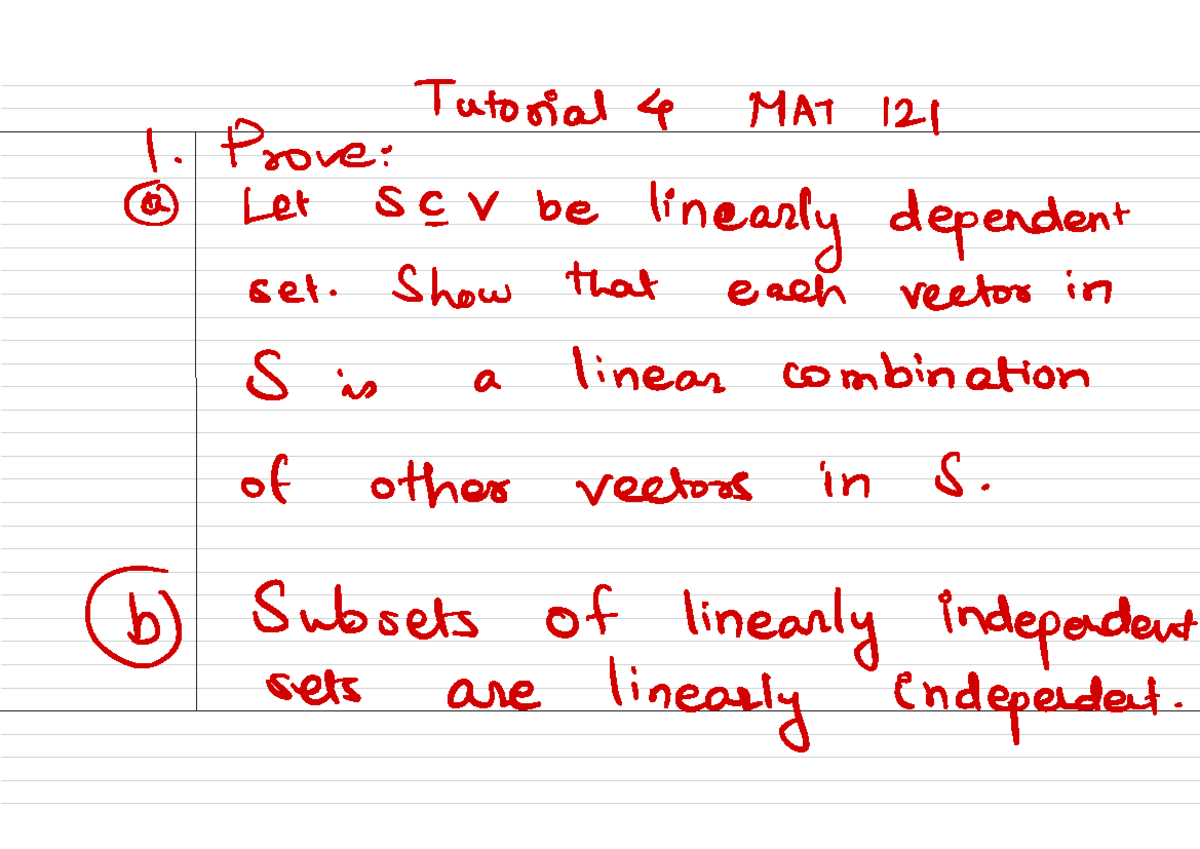 Tutorial 4 MAT 121
1. Prove:
(a) Let S ⊆ V be linearly dependent
set. Show that each vector in
S is a linear combination
of other vectors in S.
(b) Subsets of linearly independent
sets are linearly independent.